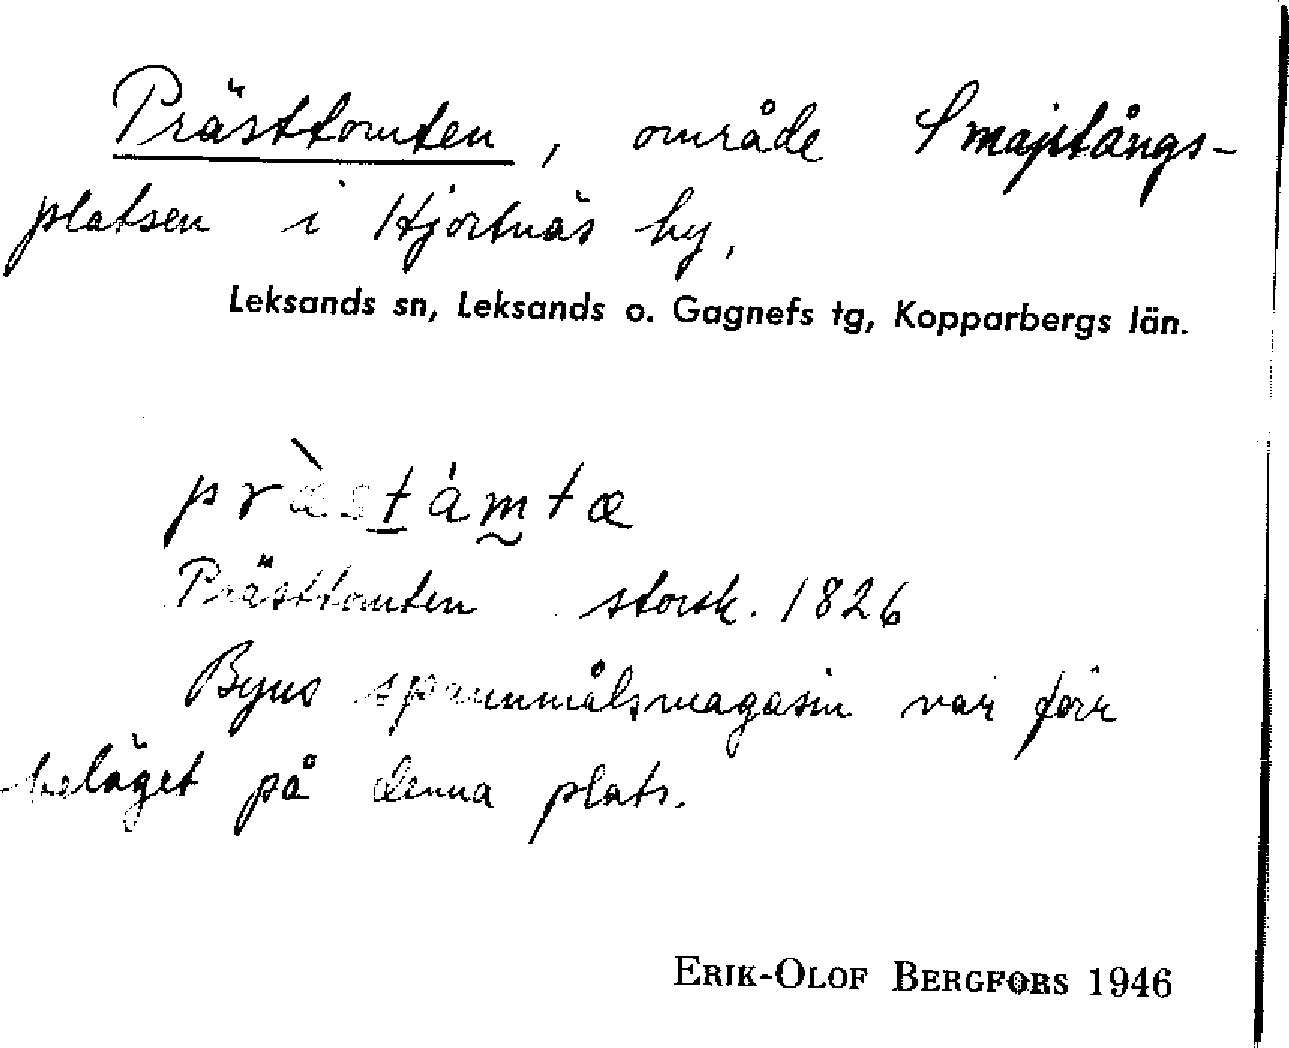 Prästtomten, område Smajstångs-
platsen i Hjortnäs by,
Leksands sn, Leksands o. Gagnefs tg, Kopparbergs län.
præ̀stámtæ
Prästtomten storsk. 1826
Byns spannmålsmagasin var förr
beläget på denna plats.
ERIK-OLOF BERGFORS 1946